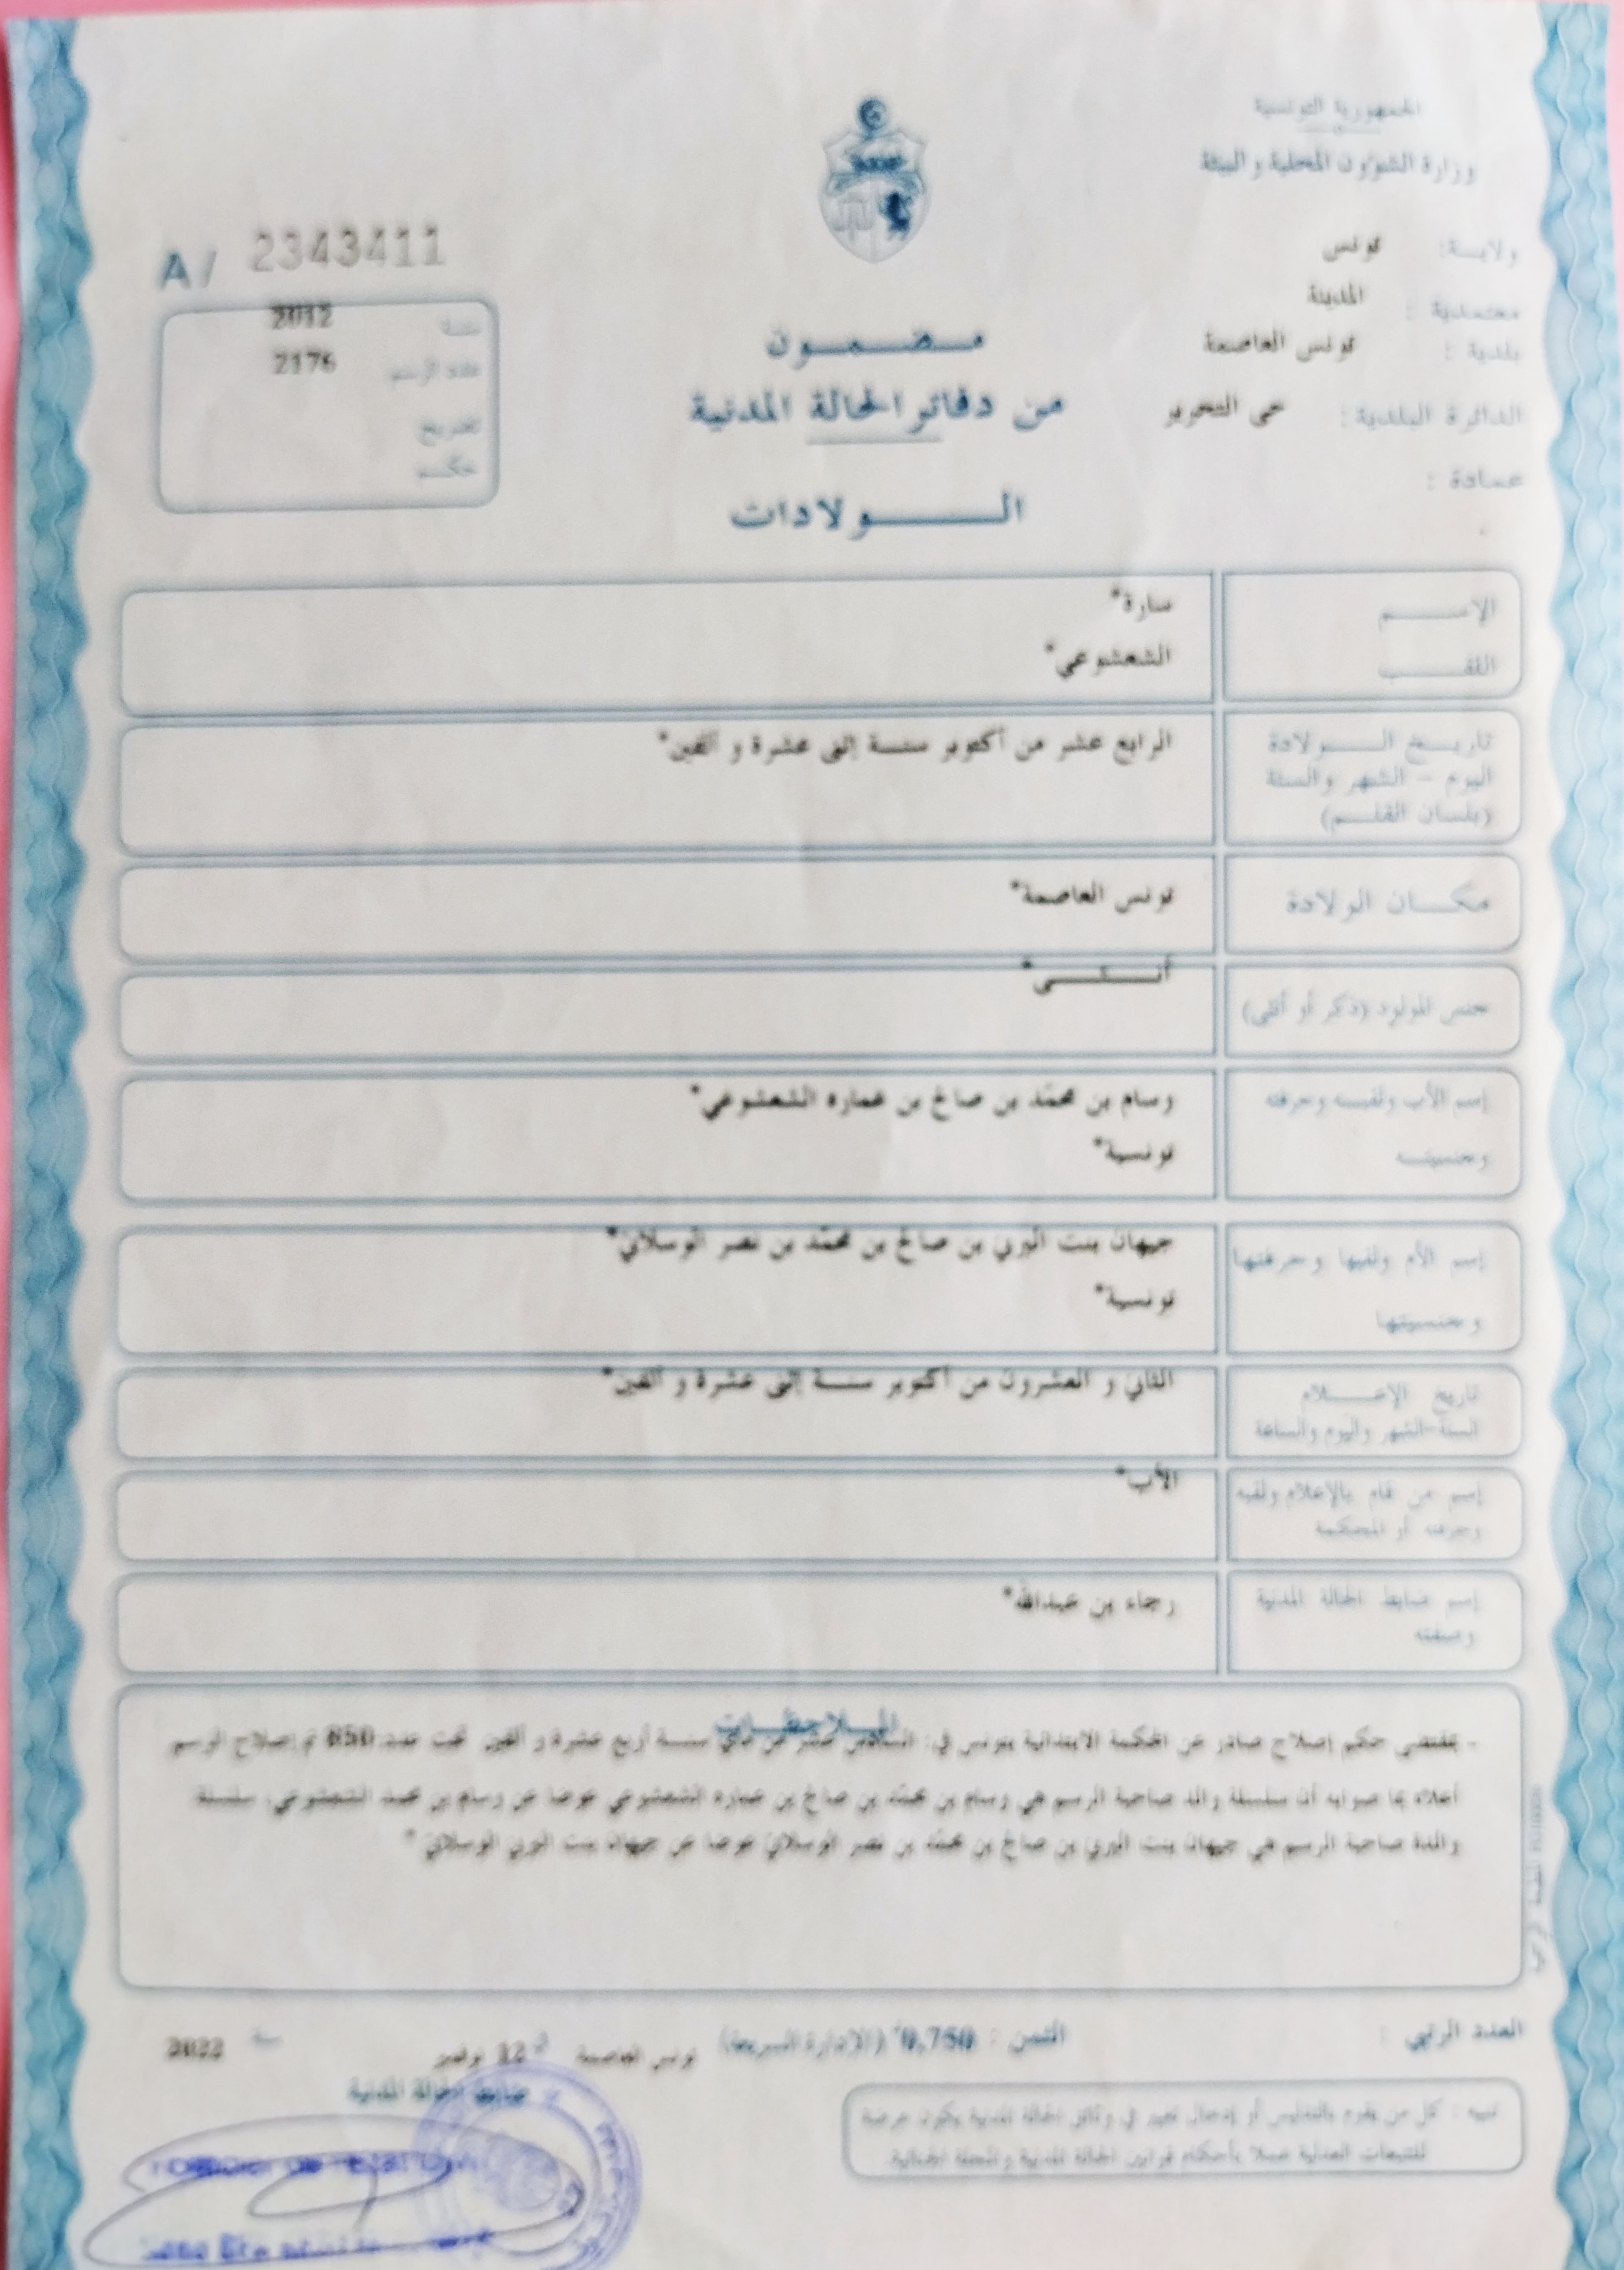 الجمهورية التونسية
وزارة الشؤون المحلية والبيئة
ولاية: تونس
معتمدية: المدينة
بلدية: تونس العاصمة
الدائرة البلدية: حي التحرير
عمادة:
A/ 2343411
سنة 2012
عدد الرسم 2176
تاريخ
حكم
مضمون
من دفاتر الحالة المدنية
الولادات
الإسم سارة*
اللقب الشعشوعي*
تاريخ الولادة الرابع عشر من أكتوبر سنة إثنى عشرة و ألفين*
اليوم - الشهر والسنة
(بلسان القلم)
مكان الولادة تونس العاصمة*
جنس المولود (ذكر أو أنثى) أنثى*
إسم الأب ولقبه وحرفته وسام بن محمّد بن صالح بن عماره الشعشوعي*
وجنسيته تونسية*
إسم الأم ولقبها وحرفتها جيهان بنت البري بن صالح بن محمّد بن نصر الوسلاتي*
وجنسيتها تونسية*
تاريخ الإعلام الثاني و العشرون من أكتوبر سنة إثنى عشرة و ألفين*
السنة-الشهر واليوم والساعة
إسم من قام بالإعلام ولقبه الأب*
وحرفته أو المحكمة
إسم ضابط الحالة المدنية رجاء بن عبدالله*
وصفته
الملاحظات
- بمقتضى حكم إصلاح صادر عن المحكمة الابتدائية بتونس في: السادس عشر من ماي سنة أربع عشرة و ألفين تحت عدد: 850 تم إصلاح الرسم
أعلاه بما صوابه أن سلسلة والد صاحبة الرسم هي وسام بن محمّد بن صالح بن عماره الشعشوعي عوضا عن وسام بن محمد الشعشوعي، سلسلة
والدة صاحبة الرسم هي جيهان بنت البري بن صالح بن محمّد بن نصر الوسلاتي عوضا عن جيهان بنت البري الوسلاتي*
العدد الرتبي:
الثمن: 0,750 (الإدارة السريعة)
تونس العاصمة في 12 نوفمبر سنة 2022
ضابط الحالة المدنية
تنبيه: كل من يقوم بالتدليس أو إدخال تغيير في وثائق الحالة المدنية يكون عرضة
للتتبعات العدلية عملا بأحكام قوانين الحالة المدنية والمجلة الجنائية.